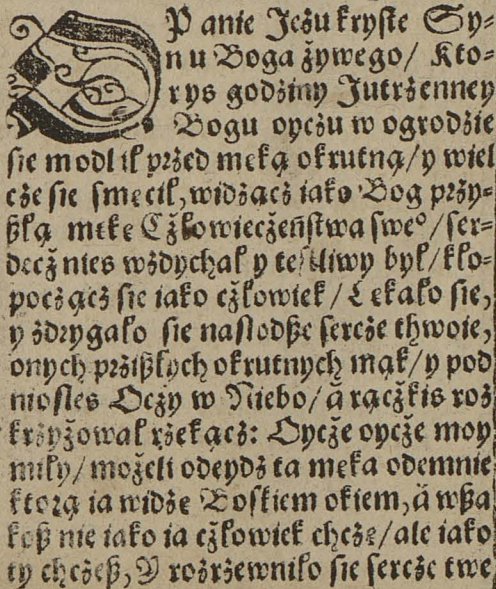 O Panie Jezu kryste Sy-
nu Boga żywego/ Kto-
rys godziny Jutrzenney
Bogu oyczu w ogrodzie
sie modlił przed męką okrutną/ y wiel
cze sie smęcił, widzącz iako Bog przy-
ßłą mękę Cżłowiecżeństwa sweº/ ser-
decż nies wzdychał y tesliwy był/ kło-
począcz sie iako cżłowiek/ Lękało sie,
y zdrygało sie nasłodße sercże thwoie,
onych przißłych okrutnych mąk/ y pod
niosłes Ocży w Niebo/ á rącżkis roz
krzyżował rzekącz: Oycże oycże moy
miły/ możeli odeydz ta męka odemnie
ktorą ia widze Boskiem okiem, á wßa
koß nie iako ia cżłowiek chcze/ ale iako
ty chczeß, Y rozrzewniło sie sercże twe